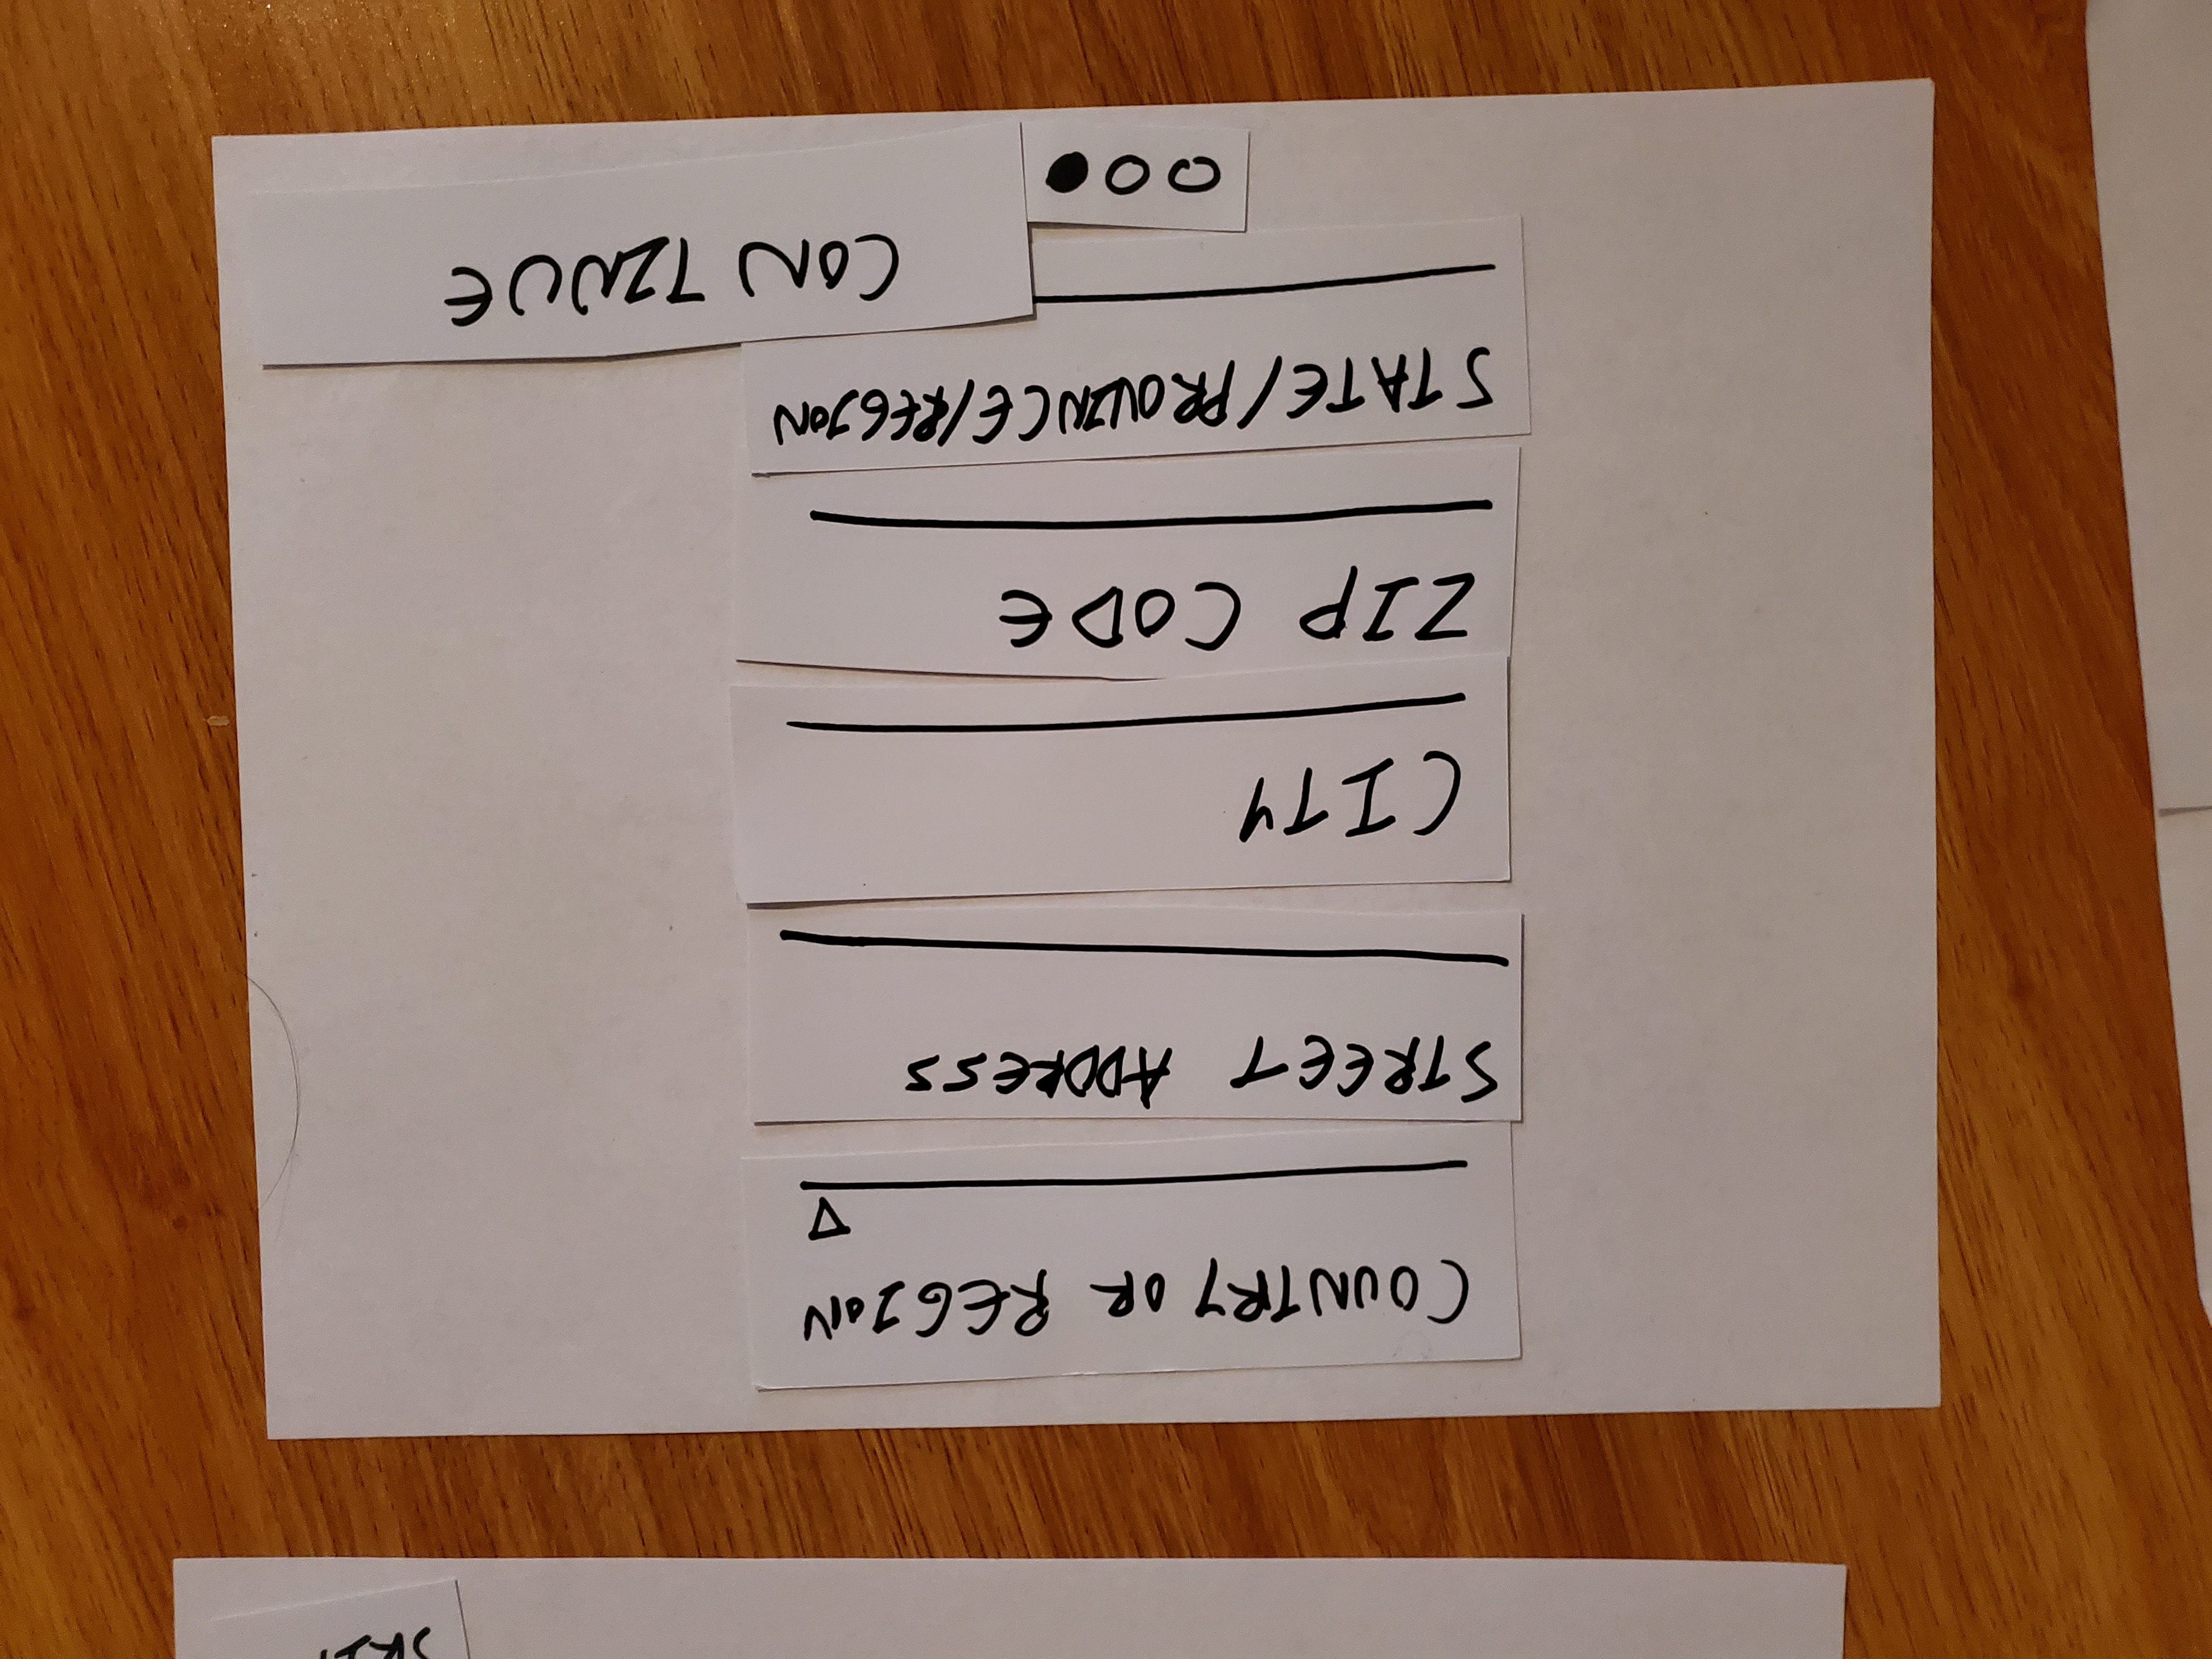 SKIP
COUNTRY OR REGION
STREET ADDRESS
CITY
ZIP CODE
STATE/PROVINCE/REGION
CONTINUE